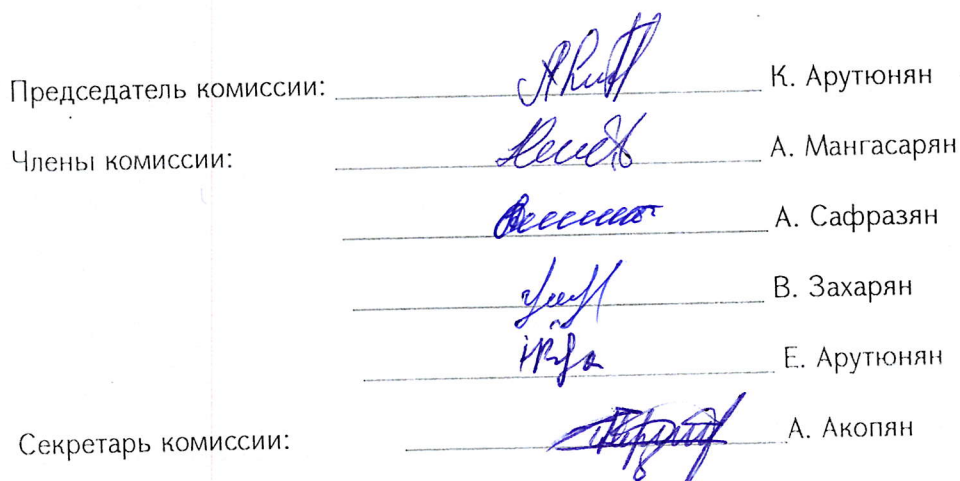 Председатель комиссии: К. Арутюнян
Члены комиссии: А. Мангасарян
А. Сафразян
В. Захарян
Е. Арутюнян
Секретарь комиссии: А. Акопян